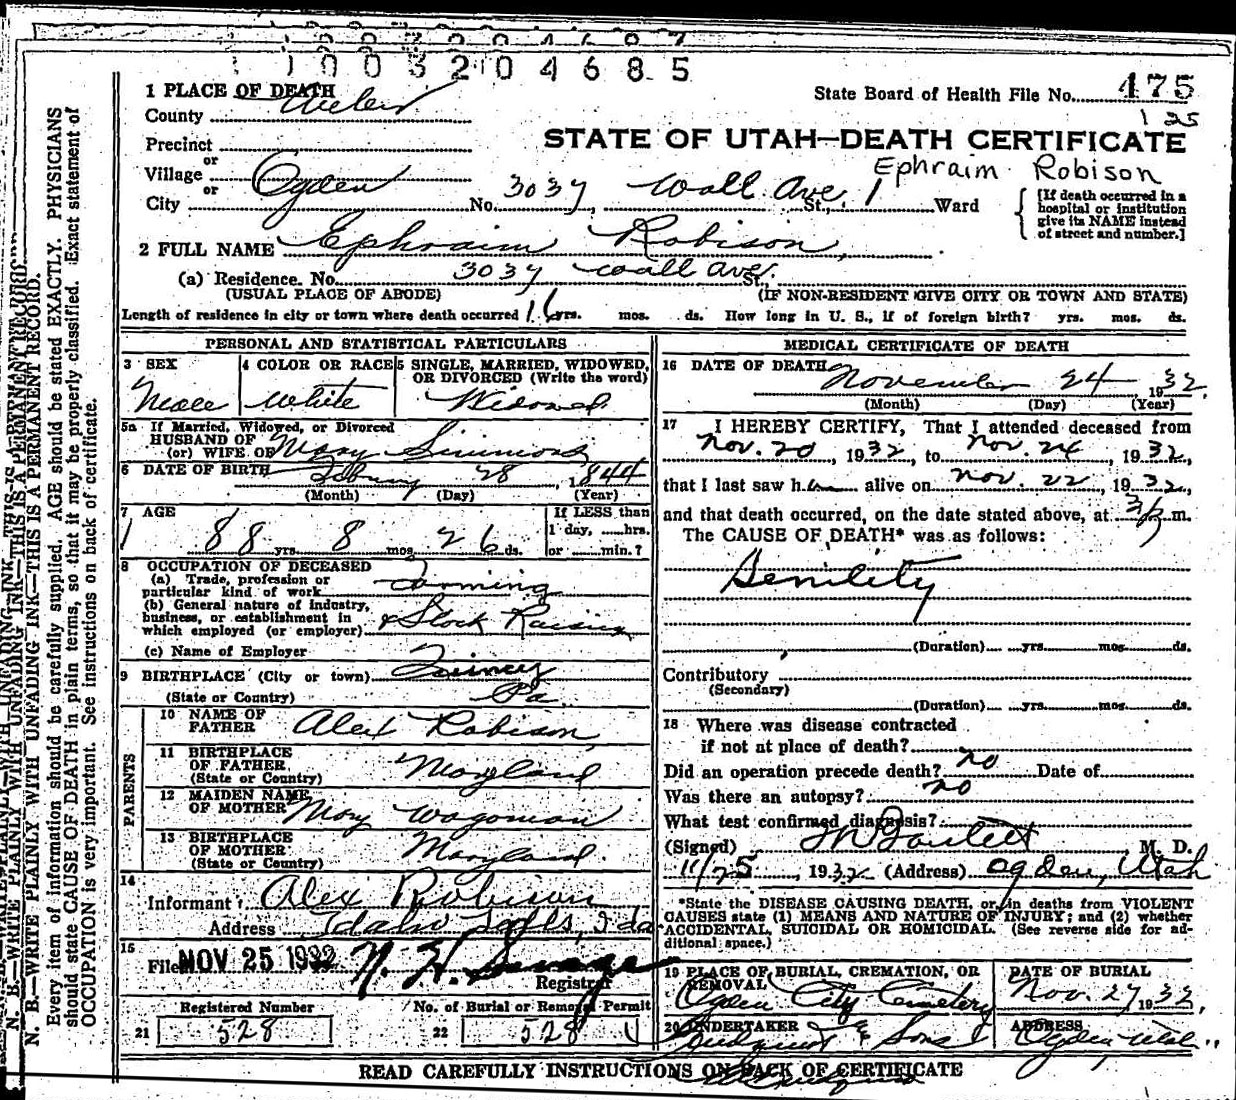 1003204685
1 PLACE OF DEATH
County Weber
State Board of Health File No. 475
125
STATE OF UTAH—DEATH CERTIFICATE
Ephraim Robison
Precinct
or
Village
or
City Ogden No. 3037 Wall Ave. St., 1 Ward
{ [If death occurred in a
hospital or institution
give its NAME instead
of street and number.]
2 FULL NAME Ephraim Robison
(a) Residence. No. 3037 Wall Ave. St.,
(USUAL PLACE OF ABODE) (IF NON-RESIDENT GIVE CITY OR TOWN AND STATE)
Length of residence in city or town where death occurred 16 yrs. mos. ds. How long in U. S., if of foreign birth? yrs. mos. ds.
PERSONAL AND STATISTICAL PARTICULARS
3 SEX
Male
4 COLOR OR RACE
White
5 SINGLE, MARRIED, WIDOWED,
OR DIVORCED (Write the word)
Widowed
5a If Married, Widowed, or Divorced
HUSBAND OF
(or) WIFE OF Mary Simmons
6 DATE OF BIRTH February 28, 1844
(Month) (Day) (Year)
7 AGE
88 yrs. 8 mos. 26 ds.
If LESS than
1 day, hrs.
or min.?
8 OCCUPATION OF DECEASED
(a) Trade, profession or
particular kind of work Farming
(b) General nature of industry,
business, or establishment in
which employed (or employer) & Stock Raising
(c) Name of Employer
9 BIRTHPLACE (City or town) Quincy
(State or Country) Pa
PARENTS
10 NAME OF
FATHER Alex Robison
11 BIRTHPLACE
OF FATHER
(State or Country) Maryland
12 MAIDEN NAME
OF MOTHER Mary Wagoman
13 BIRTHPLACE
OF MOTHER
(State or Country) Maryland
14
Informant Alex Robison
Address Idaho Falls, Ida
15
File NOV 25 1932
Registrar
Registered Number
21 528
No. of Burial or Removal Permit
22 528
MEDICAL CERTIFICATE OF DEATH
16 DATE OF DEATH November 24 1932
(Month) (Day) (Year)
17 I HEREBY CERTIFY, That I attended deceased from
Nov. 20, 1932, to Nov. 24, 1932,
that I last saw h alive on Nov. 22, 1932,
and that death occurred, on the date stated above, at m.
The CAUSE OF DEATH* was as follows:
Senility
(Duration) yrs. mos. ds.
Contributory
(Secondary)
(Duration) yrs. mos. ds.
18 Where was disease contracted
if not at place of death?
Did an operation precede death? no Date of
Was there an autopsy? no
What test confirmed diagnosis?
(Signed) M. D.
11/25, 1932 (Address) Ogden, Utah
*State the DISEASE CAUSING DEATH, or, in deaths from VIOLENT
CAUSES state (1) MEANS AND NATURE OF INJURY; and (2) whether
ACCIDENTAL, SUICIDAL OR HOMICIDAL. (See reverse side for ad-
ditional space.)
19 PLACE OF BURIAL, CREMATION, OR
REMOVAL
Ogden City Cemetery
DATE OF BURIAL
Nov. 27 1932
20 UNDERTAKER
& Sons
ADDRESS
Ogden Utah
READ CAREFULLY INSTRUCTIONS ON BACK OF CERTIFICATE
N. B.—WRITE PLAINLY WITH UNFADING INK—THIS IS A PERMANENT RECORD.
Every item of information should be carefully supplied. AGE should be stated EXACTLY. PHYSICIANS
should state CAUSE OF DEATH in plain terms, so that it may be properly classified. Exact statement of
OCCUPATION is very important. See instructions on back of certificate.